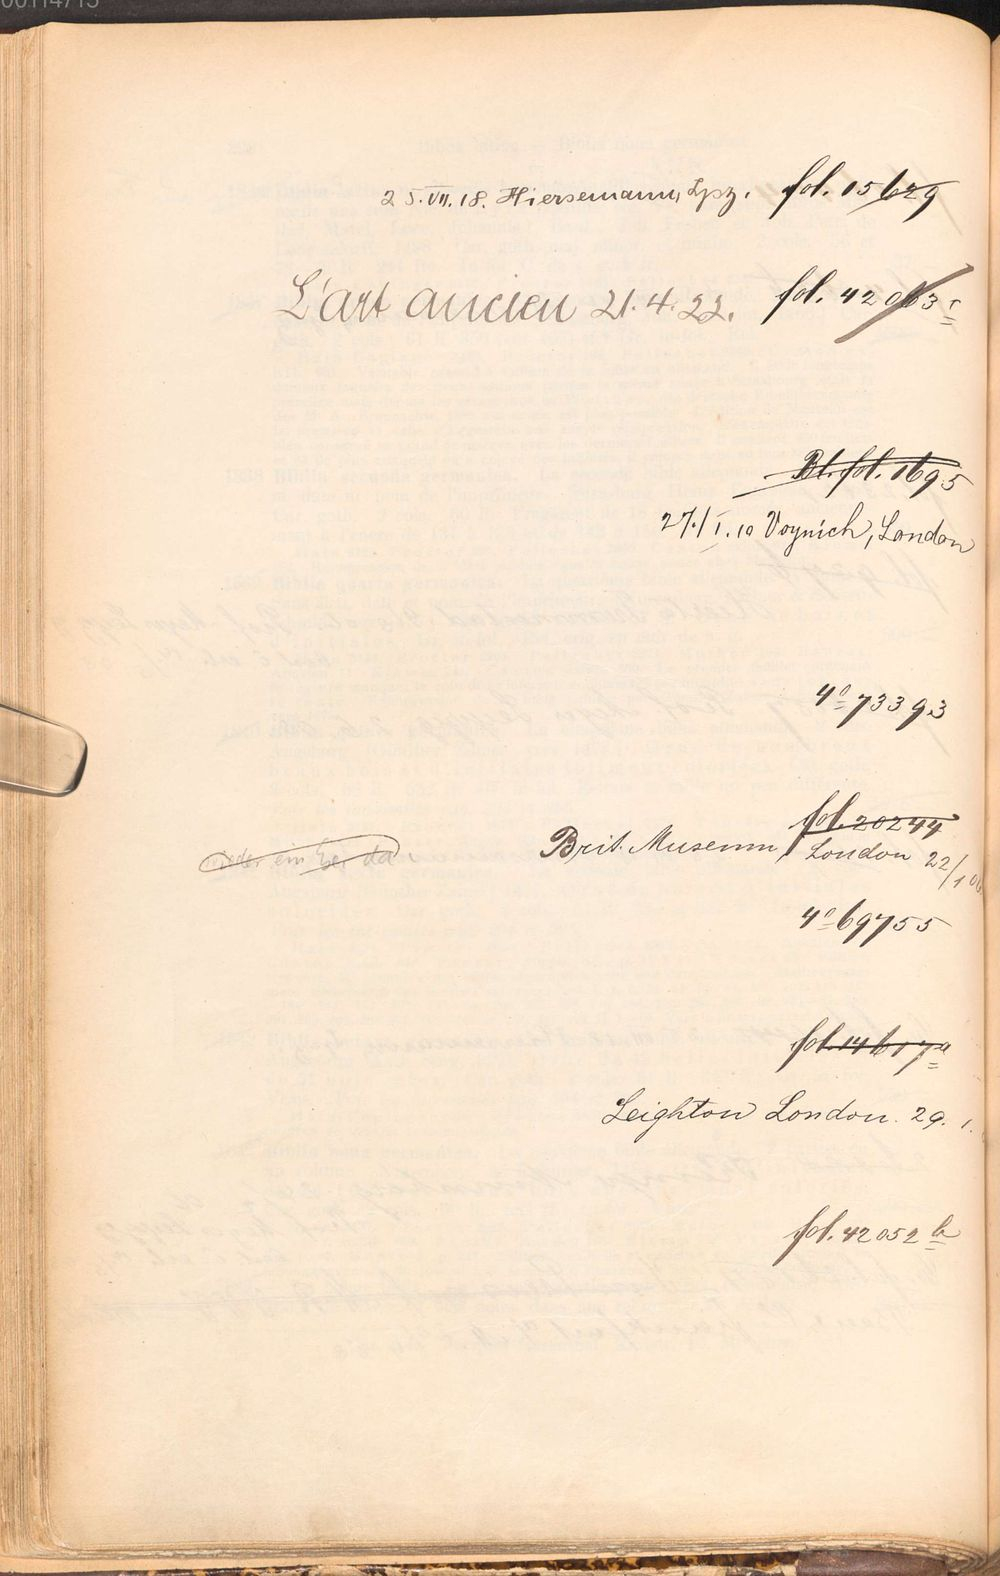 25.VII.18. Hiersemann, Lpz. fol. 15629
L'art ancien 21.4.22. fol. 42063
Bl. fol. 1695
27./I.10 Voynich, London
4º 73393
fol. 20244
Brit. Museum, London 22/1 06
4º 69755
fol. 14617a
Leighton London. 29. 1.
fol. 42052 b